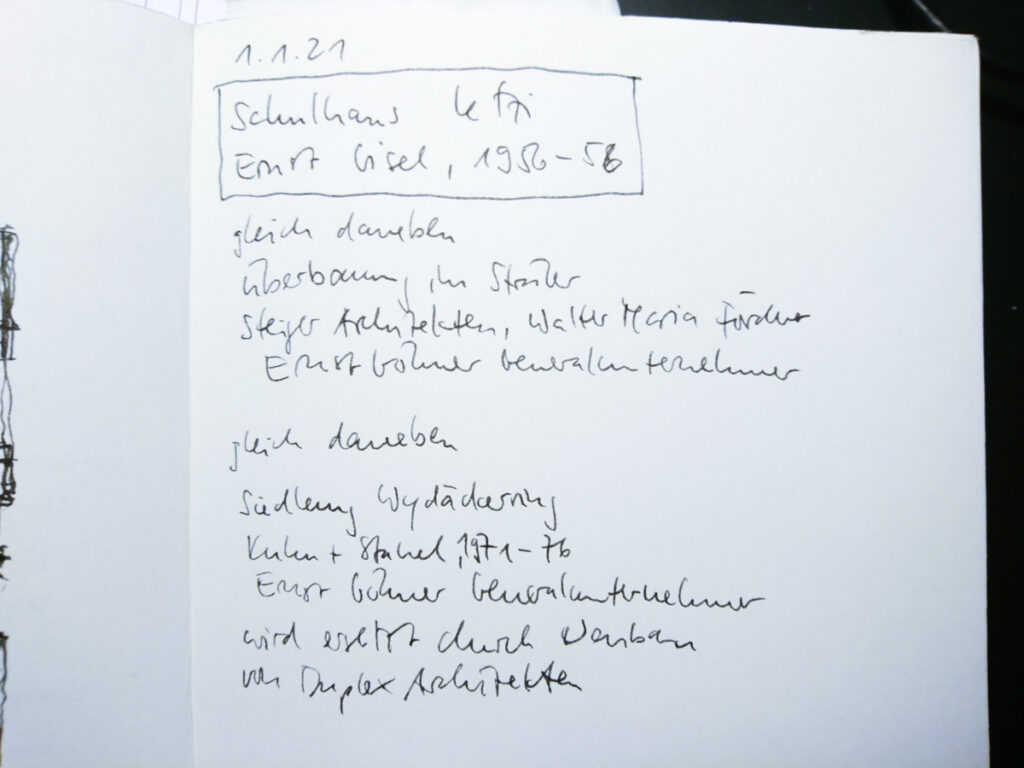 1.1.21
Schulhaus Letzi
Ernst Gisel, 1956-58
gleich daneben
Überbauung im Sträler
Steiger Architekten, Walter Maria Förderer
Ernst Göhner Generalunternehmer
gleich daneben
Siedlung Wydäckerring
Kuhn + Stahel, 1971-76
Ernst Göhner Generalunternehmer
wird ersetzt durch Neubau
von Duplex Architekten